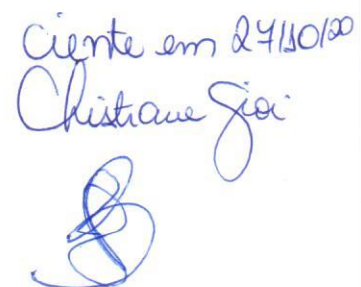 Ciente em 27/10/20
Christiane Gioi